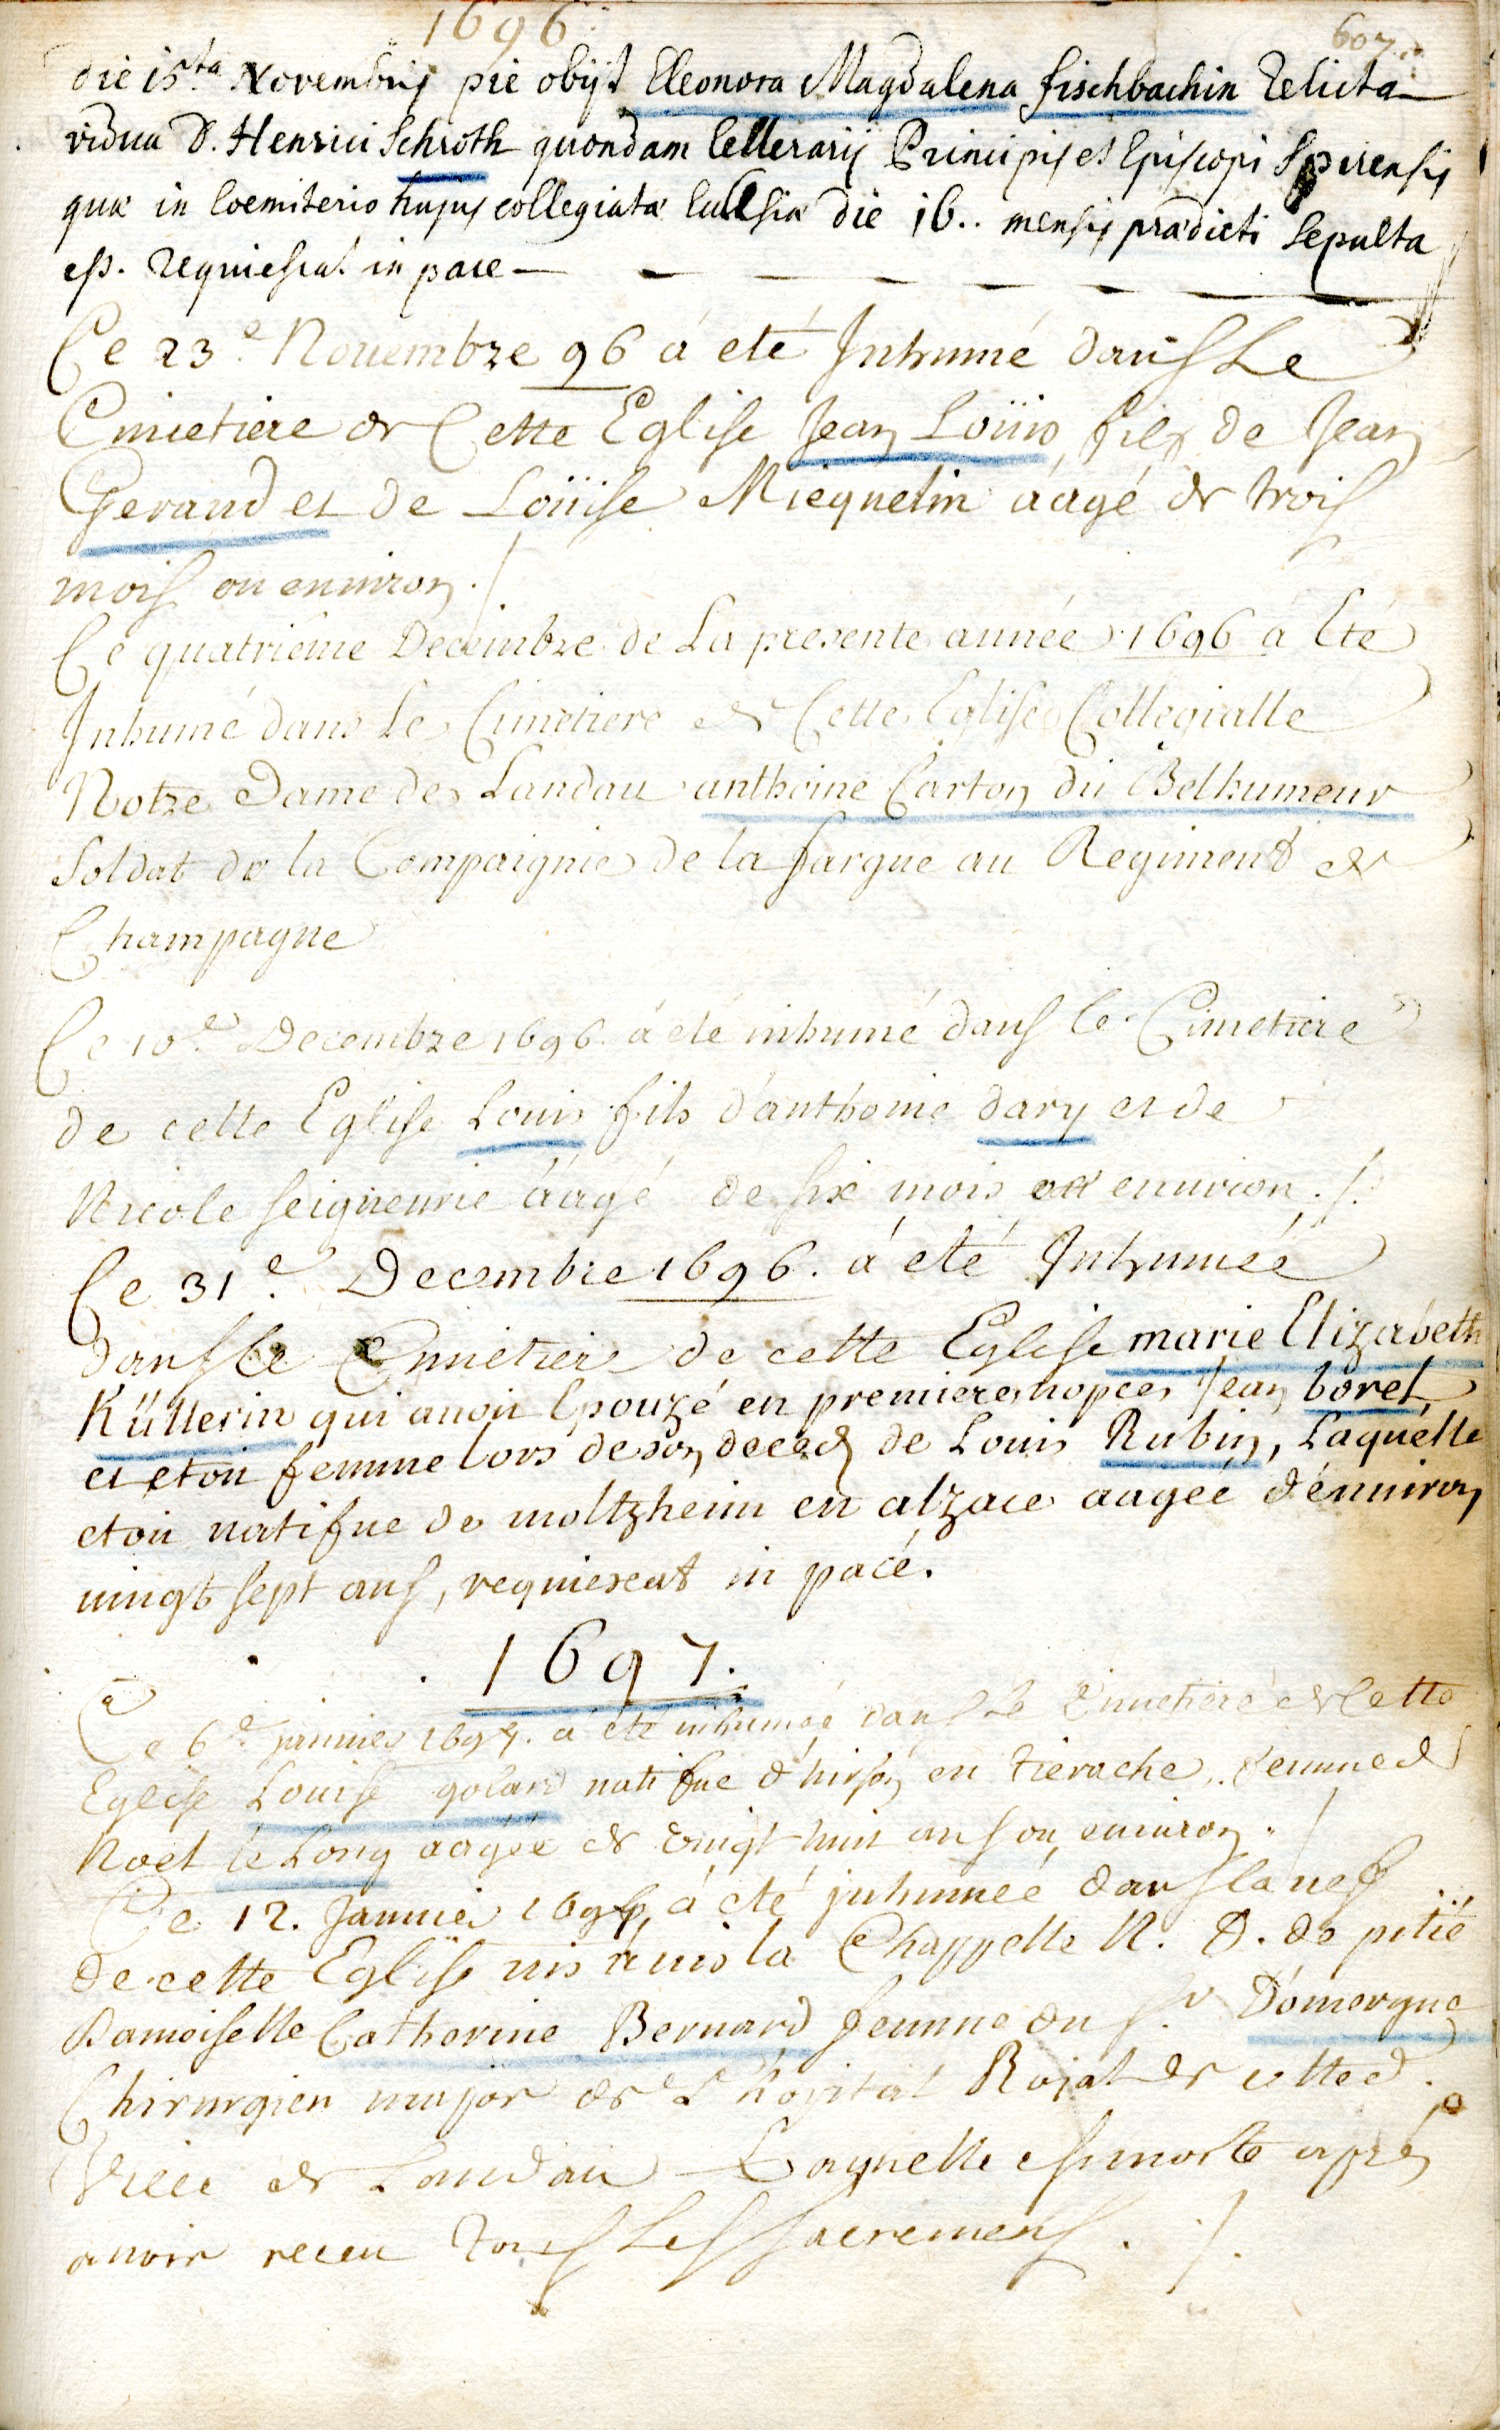 1696
607.
die 15.ta Novembris pie obijt Eleonora Magdalena fischbachin Relicta
vidua D. Henrici Schroth quondam Cellerarij Principis et Episcopi Spirensis
quæ in Coemiterio hujus collegiatæ Ecclesiæ die 16.. mensis prædicti Sepulta
est. Requiescat in pace
Ce 23.e Nouembre 96 á eté Inhumé dans Le
Cimetiere de Cette Eglise Jean Loüis fils de Jean
Geraud et de Loüise Miequelin áagé de trois
mois ou enuiron ./
Ce quatriéme Decembre de La presente année 1696 á Eté
Inhumé dans Le Cimetiere de Cette Eglise Collegialle
Notre Dame de Landau anthoine Carton dit Belhumeur
Soldat de la Compaignie de la fargue au Regiment de
Champagne
Ce 10.e Decembre 1696. á eté inhumé dans le Cimetiere
de cette Eglise Louis fils d'anthoine dary et de
Nicole seigneurie áagé de six mois ou enuiron ./.
Ce 31.e Decembre 1696. á eté Inhumée
dans le Cimetiere de cette Eglise marie Elizabeth
Küllerin qui auoit Epouzé en premieres nopces Jean borel
et etoit femme lors de son deces de Louis Rubin, Laquelle
etoit natifue de moltzheim en alzace aagée d'enuiron
uingt sept ans, requiescat in pacé.
1697.
Ce 6.e januier 1697. á eté inhumée dans le Cimetiere de Cette
Eglise Louise golard natifue d'hirson en tierache, femme de
Noel le Long aagée de vingt huit ans ou enuiron ./
Ce 12. Januier 1697 á eté inhumée dans la nef
de cette Eglise uis á uis la Chappelle N. D. de pitié
Damoiselle Catherine Bernard femme du Sr. Domergue
Chirurgien major de L'hopital Roial de cette
Ville de Landau Laquelle est morte aprés
auoir receu tous Les sacremens . /.